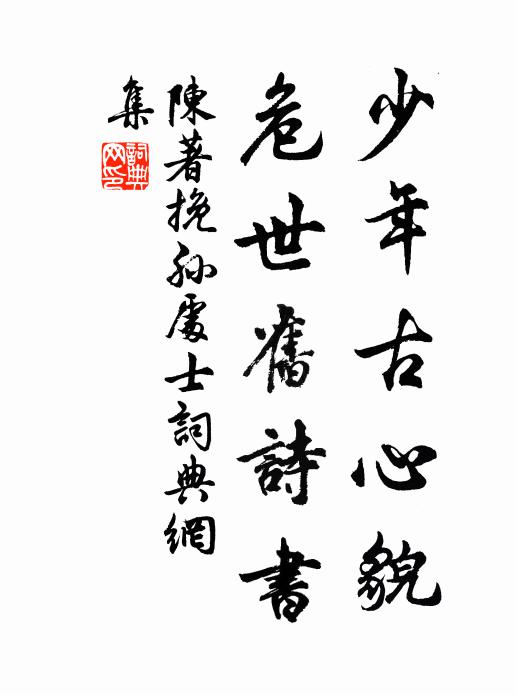 少年古心貌
危世舊詩書
陳著挽孫處士詞典網
集
詞典
网印